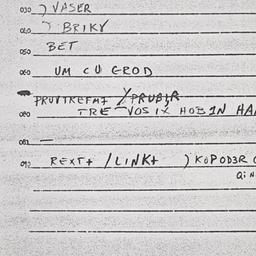 030 ) VASER
040 ) BRIKY
050 BET
060 UM CU GROD
PRUTTKEFMT / PRUBIR
080 TRE VOS IX HOBIN HA
081 —
090 REXT+ / LINK+ ) KOPOD3R
QiN